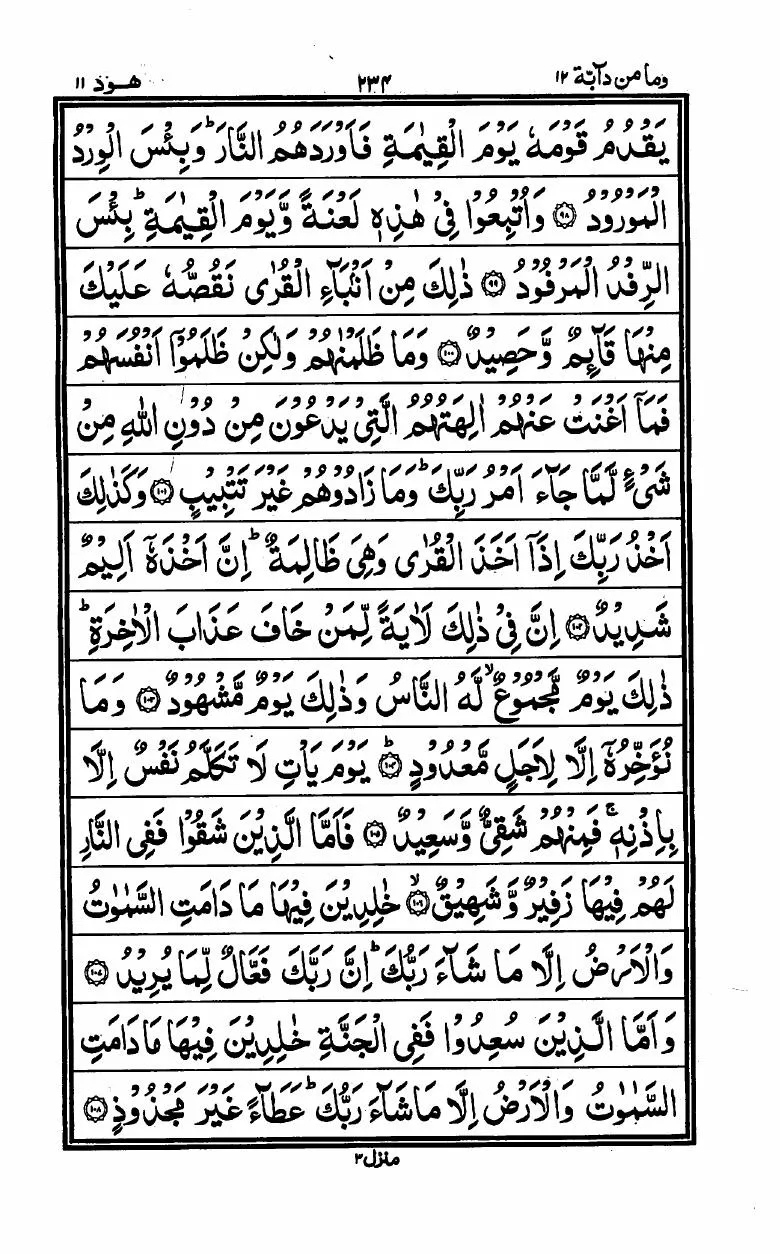 وما من دآبة ١٢
٢٣٤
هـود ١١
يَقْدُمُ قَوْمَهٗ يَوْمَ الْقِيٰمَةِ فَاَوْرَدَهُمُ النَّارَ ؕ وَبِئْسَ الْوِرْدُ
الْمَوْرُوْدُ ﴿۹۸﴾ وَاُتْبِعُوْا فِیْ هٰذِهٖ لَعْنَةً وَّيَوْمَ الْقِيٰمَةِ ؕ بِئْسَ
الرِّفْدُ الْمَرْفُوْدُ ﴿۹۹﴾ ذٰلِكَ مِنْ اَنْۢبَآءِ الْقُرٰى نَقُصُّهٗ عَلَيْكَ
مِنْهَا قَآئِمٌ وَّحَصِيْدٌ ﴿۱۰۰﴾ وَمَا ظَلَمْنٰهُمْ وَلٰكِنْ ظَلَمُوْۤا اَنْفُسَهُمْ
فَمَاۤ اَغْنَتْ عَنْهُمْ اٰلِهَتُهُمُ الَّتِیْ يَدْعُوْنَ مِنْ دُوْنِ اللّٰهِ مِنْ
شَیْءٍ لَّمَّا جَآءَ اَمْرُ رَبِّكَ ؕ وَمَا زَادُوْهُمْ غَيْرَ تَتْبِيْبٍ ﴿۱۰۱﴾ وَكَذٰلِكَ
اَخْذُ رَبِّكَ اِذَاۤ اَخَذَ الْقُرٰى وَهِیَ ظَالِمَةٌ ؕ اِنَّ اَخْذَهٗۤ اَلِيْمٌ
شَدِيْدٌ ﴿۱۰۲﴾ اِنَّ فِیْ ذٰلِكَ لَاٰيَةً لِّمَنْ خَافَ عَذَابَ الْاٰخِرَةِ ؕ
ذٰلِكَ يَوْمٌ مَّجْمُوْعٌ ۙ لَّهُ النَّاسُ وَذٰلِكَ يَوْمٌ مَّشْهُوْدٌ ﴿۱۰۳﴾ وَمَا
نُؤَخِّرُهٗۤ اِلَّا لِاَجَلٍ مَّعْدُوْدٍ ؕ﴿۱۰۴﴾ يَوْمَ يَاْتِ لَا تَكَلَّمُ نَفْسٌ اِلَّا
بِاِذْنِهٖ ۚ فَمِنْهُمْ شَقِیٌّ وَّسَعِيْدٌ ﴿۱۰۵﴾ فَاَمَّا الَّذِيْنَ شَقُوْا فَفِی النَّارِ
لَهُمْ فِيْهَا زَفِيْرٌ وَّشَهِيْقٌ ۙ﴿۱۰۶﴾ خٰلِدِيْنَ فِيْهَا مَا دَامَتِ السَّمٰوٰتُ
وَالْاَرْضُ اِلَّا مَا شَآءَ رَبُّكَ ؕ اِنَّ رَبَّكَ فَعَّالٌ لِّمَا يُرِيْدُ ﴿۱۰۷﴾
وَاَمَّا الَّذِيْنَ سُعِدُوْا فَفِی الْجَنَّةِ خٰلِدِيْنَ فِيْهَا مَا دَامَتِ
السَّمٰوٰتُ وَالْاَرْضُ اِلَّا مَا شَآءَ رَبُّكَ ؕ عَطَآءً غَيْرَ مَجْذُوْذٍ ﴿۱۰۸﴾
منزل ٣